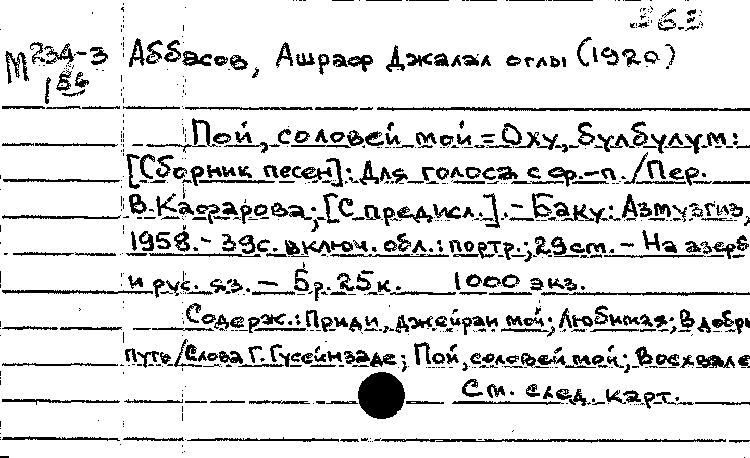 363
М 234-3 Аббасов, Ашраф Джалал оглы (1920)
156
Пой, соловей мой = Оху, булбулум:
[Сборник песен]: Для голоса с ф.-п. / Пер.
В. Кафарова; [С предисл.]. - Баку: Азмузгиз,
1958. - 39с. включ. обл.: портр.; 29cm. - На азерб
и рус. яз. - 5р. 25к. 1000 экз.
Содерж.: Приди, джейран мой; Любимая; В добры
путь / Слова Г. Гусейнзаде; Пой, соловей мой; Восхвале
См. след. карт.